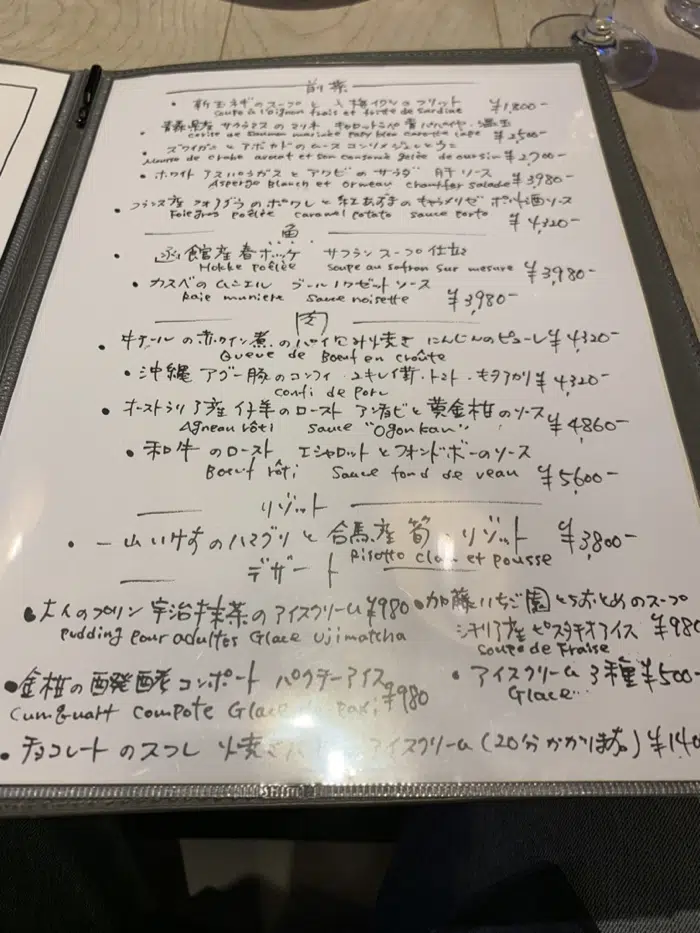 前菜
・新玉ネギのスープと入梅イワシのフリット ¥1,800-
Soupe à l'oignon frais et frite de sardine
青森県産サクラマスのマリネ キャロットラペ 青パパイヤ
¥2500-
・ズワイガニとアボカドのムース コンソメジュレとウニ
Mousse de crabe avocat et son consomé gelée de oursin ¥2,700-
・ホワイトアスパラガスとアワビのサラダ 肝ソース
Asperge blanch et ormeau chauffer salade ¥3,980-
・フランス産フォアグラのポワレと紅あずまのキャラメリゼ ポルト酒ソース
Foiegras poêlée caramel potato sauce porto ¥4,320-
魚
・函館産春ホッケ サフランスープ仕立
Hokke poêlée soupe au safron sur mesure ¥3,980-
・カスベのムニエル ブールノワゼットソース
Raie muniere sauce noisette ¥3,980-
肉
・牛テールの赤ワイン煮のパイ包み焼き にんじんのピューレ ¥4320-
Queue de Boeuf en croûte
・沖縄アグー豚のコンフィ ユキレイ茸・トマト・キタアカリ ¥4,320-
confi de porc
・オーストラリア産仔羊のロースト アンチョビと黄金柑のソース ¥4,860-
Agneau rôti sauce "Ogonkan"
・和牛のロースト エシャロットとフォンドボーのソース
Boeuf rôti Sauce fond de veau ¥5,600-
リゾット
・一山いけすのハマグリと合馬産筍のリゾット ¥3,800-
Risotto clam et pousse
デザート
・大人のプリン 宇治抹茶のアイスクリーム ¥980
pudding pour adultes Glace Ujimatcha
・加藤いちご園とちおとめのスープ
シチリア産ピスタチオアイス ¥980
Soupe de Fraise
・金柑の醗酵コンポート パクチーアイス ¥980
Cumquart compote Glace
・アイスクリーム3種 ¥500-
Glace
・チョコレートのスフレ 焼き アイスクリーム (20分かかります。) ¥1,40